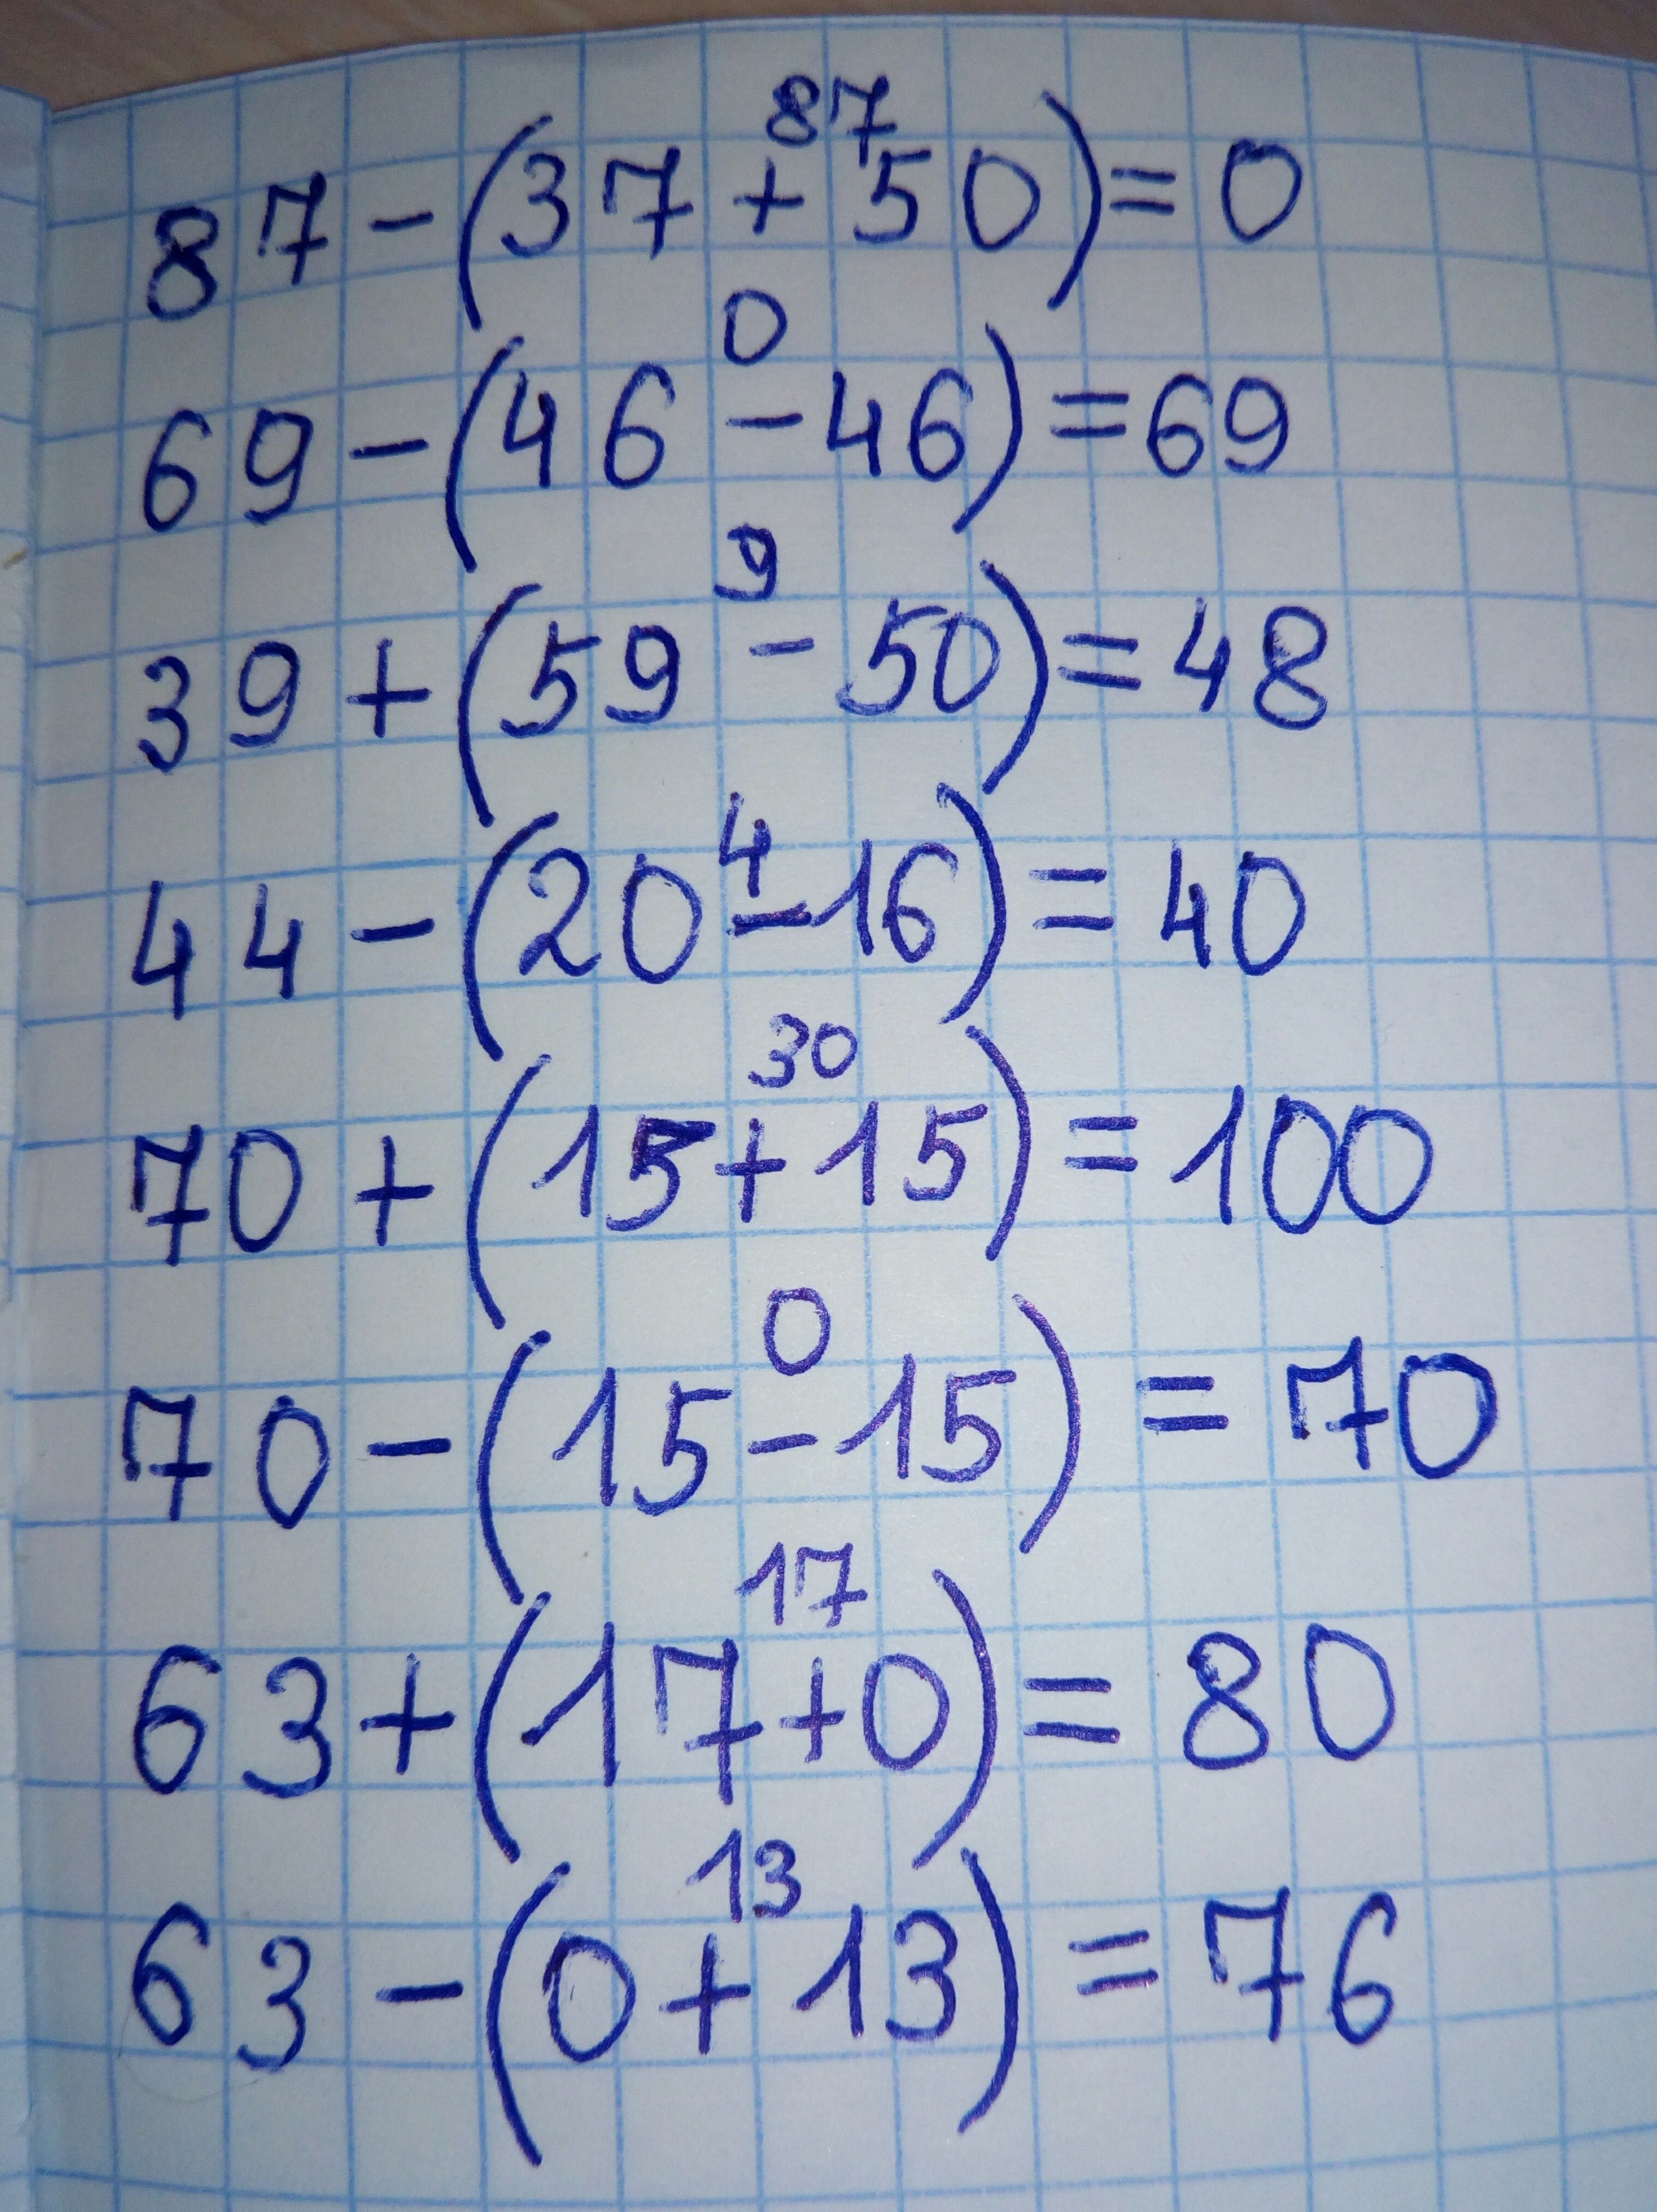 87
87-(37+50)=0
0
69-(46-46)=69
9
39+(59-50)=48
4
44-(20-16)=40
30
70+(15+15)=100
0
70-(15-15)=70
17
63+(17+0)=80
13
63-(0+13)=76